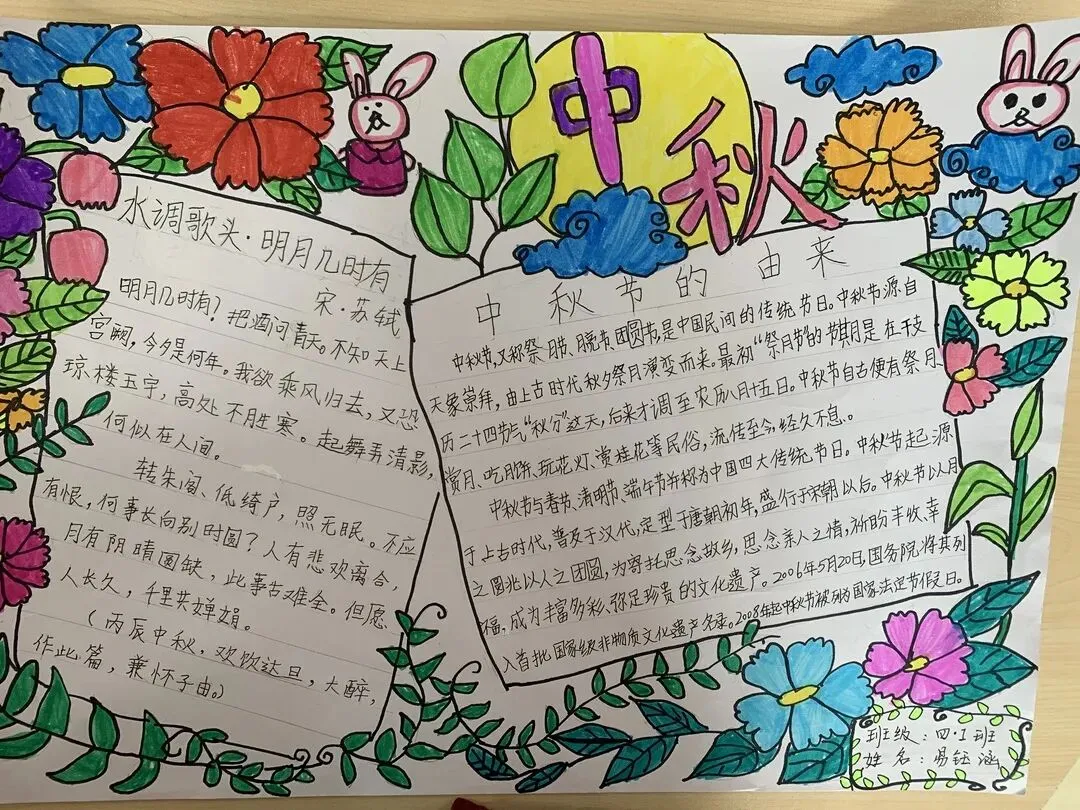 中秋
水调歌头·明月几时有
宋·苏轼
明月几时有？把酒问青天。不知天上
宫阙，今夕是何年。我欲乘风归去，又恐
琼楼玉宇，高处不胜寒。起舞弄清影，
何似在人间。
转朱阁、低绮户，照无眠。不应
有恨，何事长向别时圆？人有悲欢离合，
月有阴晴圆缺，此事古难全。但愿
人长久，千里共婵娟。
（丙辰中秋，欢饮达旦，大醉，
作此篇，兼怀子由。）
中秋节的由来
中秋节，又称祭月节、月晚节、团圆节，是中国民间的传统节日。中秋节源自
天象崇拜，由上古时代秋夕祭月演变而来。最初“祭月节”的节期是在干支
历二十四节气“秋分”这天，后来才调至农历八月十五日。中秋节自古便有祭月、
赏月、吃月饼、玩花灯、赏桂花等民俗，流传至今，经久不息。
中秋节与春节、清明节、端午节并称为中国四大传统节日。中秋节起源
于上古时代，普及于汉代，定型于唐朝初年，盛行于宋朝以后。中秋节以月
之圆兆以人之团圆，为寄托思念故乡，思念亲人之情，祈盼丰收、幸
福，成为丰富多彩、弥足珍贵的文化遗产。2006年5月20日，国务院将其列
入首批国家级非物质文化遗产名录。2008年起中秋节被列为国家法定节假日。
班级：四·1班
姓名：易钰涵